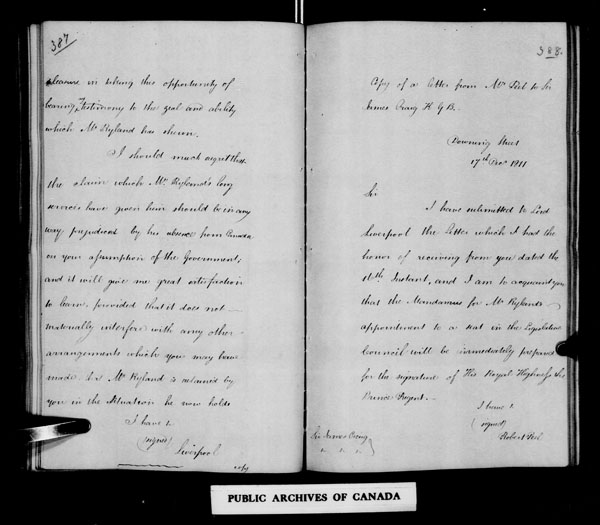 387
pleasure in taking this opportunity of
bearing testimony to the zeal and ability
which Mr Ryland has shewn.
I should much regret that
the claim which Mr Ryland's long
services have given him should be in any
way prejudiced by his absence from Canada
on your assumption of the Government,
and it will give me great satisfaction
to learn, provided that it does not
materially interfere with any other
arrangements which you may have
made that Mr Ryland is retained by
you in the Situation he now holds
I have &
(signed)
Liverpool
copy
388.
Copy of a letter from Mr Peel to Sir
James Craig K.G.B.
Downing Street
17th Decr 1811
Sir
I have submitted to Lord
Liverpool the Letter which I had the
honor of receiving from you dated the
16th Instant, and I am to acquaint you
that the Mandamus for Mr Ryland's
appointment to a seat in the Legislative
Council will be immediately prepared
for the signature of His Royal Highness the
Prince Regent.
I have &
(signed)
Robert Peel
Sir James Craig
PUBLIC ARCHIVES OF CANADA